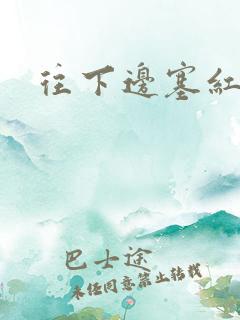 往下邊塞紅
巴士途
未经同意禁止转载